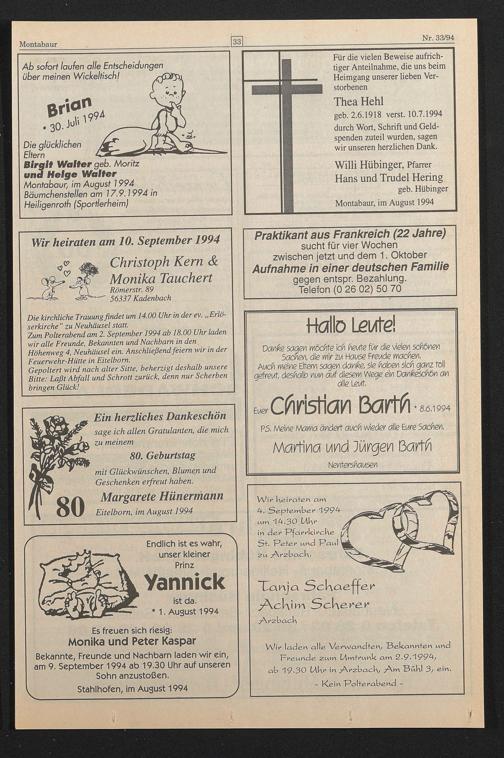 Montabaur
33
Nr. 33/94
Ab sofort laufen alle Entscheidungen
über meinen Wickeltisch!
Brian
* 30. Juli 1994
Die glücklichen
Eltern
Birgit Walter geb. Moritz
und Helge Walter
Montabaur, im August 1994
Bäumchenstellen am 17.9.1994 in
Heiligenroth (Sportlerheim)
Für die vielen Beweise aufrich-
tiger Anteilnahme, die uns beim
Heimgang unserer lieben Ver-
storbenen
Thea Hehl
geb. 2.6.1918 verst. 10.7.1994
durch Wort, Schrift und Geld-
spenden zuteil wurden, sagen
wir unseren herzlichen Dank.
Willi Hübinger, Pfarrer
Hans und Trudel Hering
geb. Hübinger
Montabaur, im August 1994
Wir heiraten am 10. September 1994
Christoph Kern &
Monika Tauchert
Römerstr. 89
56337 Kadenbach
Die kirchliche Trauung findet um 14.00 Uhr in der ev. „Erlö-
serkirche" zu Neuhäusel statt.
Zum Polterabend am 2. September 1994 ab 18.00 Uhr laden
wir alle Freunde, Bekannten und Nachbarn in den
Höhenweg 4, Neuhäusel ein. Anschließend feiern wir in der
Feuerwehr-Hütte in Eitelborn.
Gepoltert wird nach alter Sitte, beherzigt deshalb unsere
Bitte: Laßt Abfall und Schrott zurück, denn nur Scherben
bringen Glück!
Praktikant aus Frankreich (22 Jahre)
sucht für vier Wochen
zwischen jetzt und dem 1. Oktober
Aufnahme in einer deutschen Familie
gegen entspr. Bezahlung.
Telefon (0 26 02) 50 70
Hallo Leute!
Danke sagen möchte ich heute für die vielen schönen
Sachen, die mir zu Hause Freude machen.
Auch meine Eltern sagen danke, sie haben sich ganz toll
gefreut, deshalb nun auf diesem Wege ein Dankeschön an
alle Leut.
Euer Christian Barth * 8.6.1994
P.S. Meine Mama ändert auch wieder alle Eure Sachen.
Martina und Jürgen Barth
Nentershausen
Ein herzliches Dankeschön
sage ich allen Gratulanten, die mich
zu meinem
80. Geburtstag
mit Glückwünschen, Blumen und
Geschenken erfreut haben.
80
Margarete Hünermann
Eitelborn, im August 1994
Endlich ist es wahr,
unser kleiner
Prinz
Yannick
ist da.
* 1. August 1994
Es freuen sich riesig:
Monika und Peter Kaspar
Bekannte, Freunde und Nachbarn laden wir ein,
am 9. September 1994 ab 19.30 Uhr auf unseren
Sohn anzustoßen.
Stahlhofen, im August 1994
Wir heiraten am
4. September 1994
um 14.30 Uhr
in der Pfarrkirche
St. Peter und Paul
zu Arzbach.
Tanja Schaeffer
Achim Scherer
Arzbach
Wir laden alle Verwandten, Bekannten und
Freunde zum Umtrunk am 2.9.1994,
ab 19.30 Uhr in Arzbach, Am Bühl 3, ein.
- Kein Polterabend -